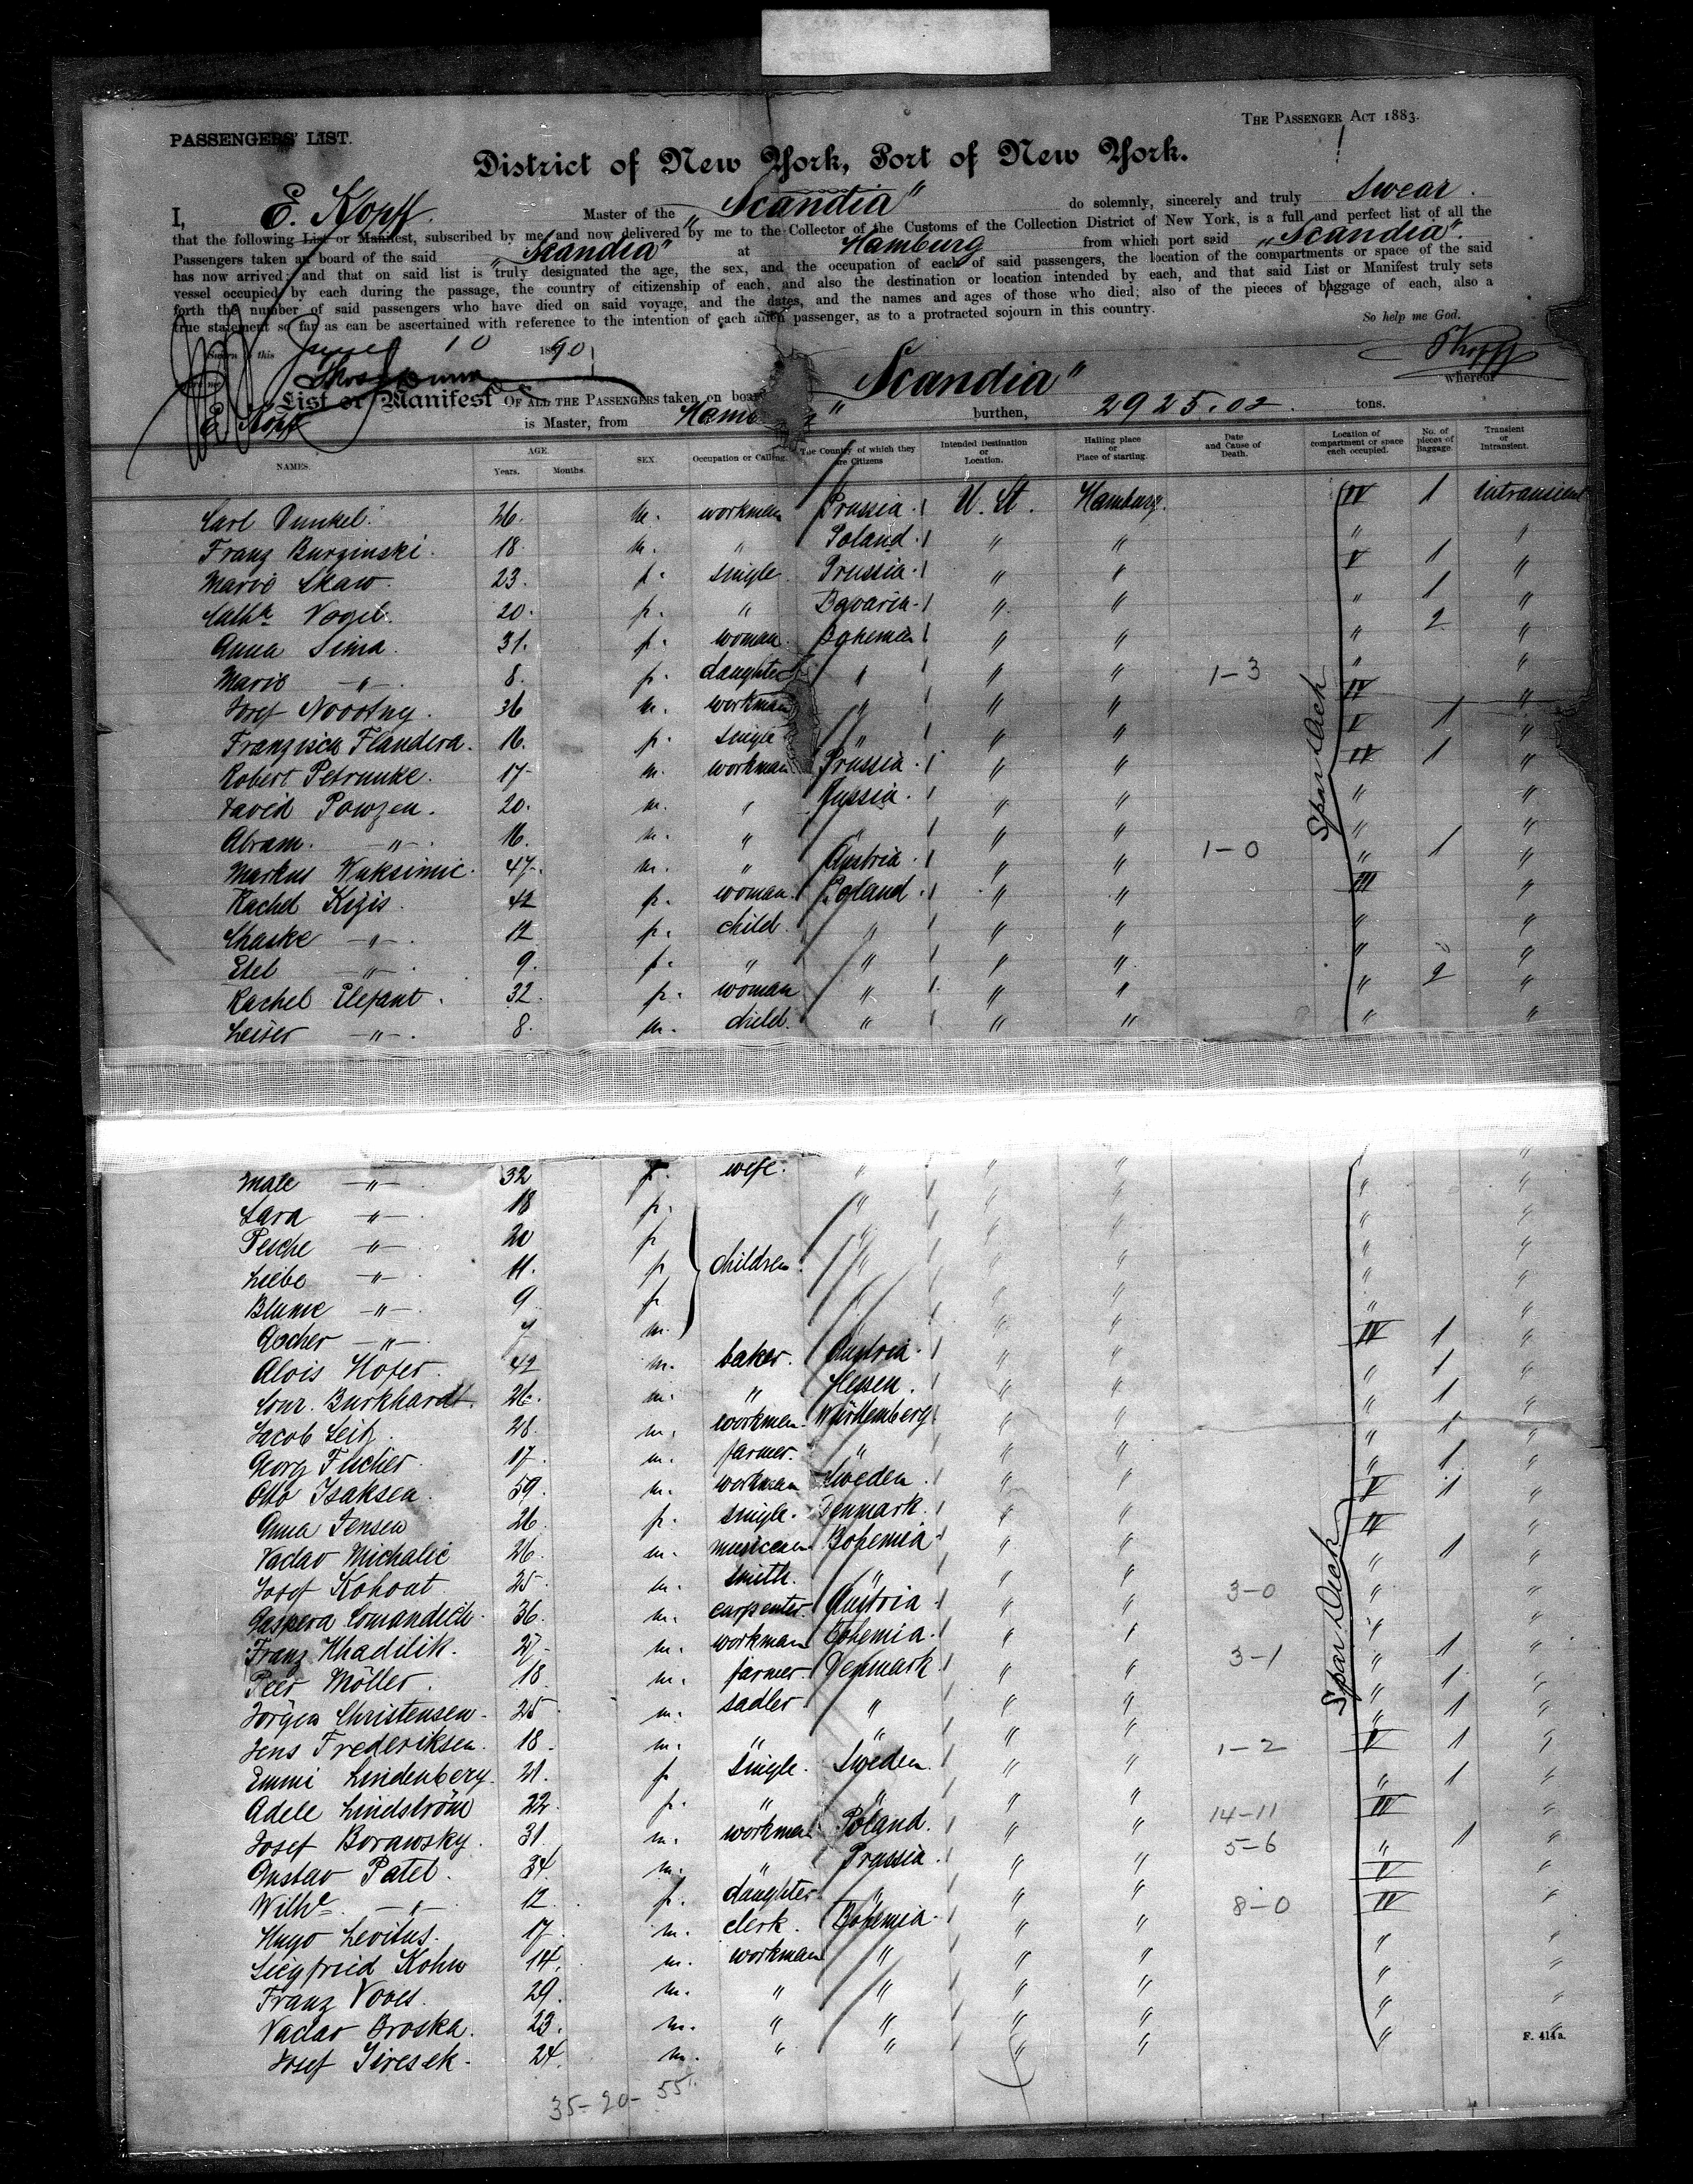 PASSENGERS' LIST.
THE PASSENGER ACT 1883.
District of New York, Port of New York.
I, E. Kopff. Master of the "Scandia" do solemnly, sincerely and truly Swear
that the following List or Manifest, subscribed by me and now delivered by me to the Collector of the Customs of the Collection District of New York, is a full and perfect list of all the
Passengers taken on board of the said "Scandia" at Hamburg from which port said "Scandia".
has now arrived; and that on said list is truly designated the age, the sex, and the occupation of each of said passengers, the location of the compartments or space of the said
vessel occupied by each during the passage, the country of citizenship of each, and also the destination or location intended by each, and that said List or Manifest truly sets
forth the number of said passengers who have died on said voyage, and the dates, and the names and ages of those who died; also of the pieces of baggage of each, also a
true statement so far as can be ascertained with reference to the intention of each alien passenger, as to a protracted sojourn in this country.
So help me God.
Sworn this 10 1890
List or Manifest OF ALL THE PASSENGERS taken on board "Scandia" whereof
E. Kopff is Master, from burthen, 2925.02. tons.
NAMES. AGE. Years. Months. SEX. Occupation or Calling. The Country of which they are Citizens Intended Destination or Location. Hailing place or Place of starting. Date and Cause of Death. Location of compartment or space each occupied. No. of pieces of Baggage. Transient or Intransient.
Carl Dunkel. 26. m. workman Prussia. U. St. Hamburg. IV 1 intransient
Franz Burginski. 18. m. " Poland. " " " "
Marie Skaw. 23. f. single Prussia. " " V 1 "
Cath. Vogel. 20. f. " Bavaria. " " " 1 "
Anna Sima. 31. f. woman Bohemia " " " 2 "
Marie —"—. 8. f. daughter " " " 1-3 " "
Josef Novotny. 36 m. workman " " " IV "
Franzisca Flandera. 16. f. single " " " V 1 "
Robert Petrunke. 17. m. workman Prussia. " " IV 1 "
David Powzen. 20. m. " Russia. " " " "
Abram. —"—. 16. m. " " " " " "
Markus Wuksimic. 47. m. " Austria. " " 1-0 " 1 "
Rachel Kizis. 42 f. woman. Poland. " " III "
Chaske —"—. 12 f. child. " " " " "
Etel —"—. 9. f. " " " " " "
Rachel Elefant. 32. f. woman " " " " 2 "
Leiser —"—. 8. m. child. " " " " "
Male —"— 32 f. wife. " " " " "
Sara —"— 18 f. " " " " "
Pesche —"— 20 f " " " " "
Liebe —"— 11. f children. " " " " "
Blume —"— 9 f " " " "
Ascher —"—. 7 m. " " " "
Alois Hofer. 42 m. baker. Austria. " " IV 1 "
Conr. Burkhardt. 26. m. " Hessen. " " " 1 "
Jacob Seitz. 28. m. workman Württemberg " " " 1 "
Georg Fischer. 17. m. farmer. " " " " 1 "
Otto Isaksen. 59. m. workman Sweden. " " " 1 "
Anna Jensen 26. f. single. Denmark. " " V 1 "
Vaclav Michalic 26. m. musician Bohemia " " IV "
Josef Kohout. 25. m. smith. " " " " 1 "
Gaspera Comandich. 36. m. carpenter. Austria " " 3-0 " "
Franz Khadilik. 27. m. workman Bohemia. " " " "
Peer Möller. 18. m. farmer. Denmark. " " 3-1 " 1 "
Jörgen Christensen. 25 m. sadler " " " " 1 "
Jens Frederiksen. 18. m. " " " " " 1 "
Emmi Lindenberg. 21. f single. Sweden. " " 1-2 V 1 "
Adele Lindström 22. f. " " " " " 1 "
Josef Borawsky. 31. m. workman Poland. " " 14-11 IV "
Gustav Patel. 34. m. " Prussia. " " 5-6 " 1 "
Wilhe. —"— 12. f. daughter " " " V "
Hugo Levitus. 17. m. clerk. Bohemia. " " 8-0 IV "
Siegfried Kohn 14. m. workman " " " " "
Franz Voves. 29. m. " " " " " "
Vaclav Broska. 23. m. " " " " " "
Josef Jiresek. 24. m. " " " " " "
Spar Deck
Spar Deck
35-20-55
F. 414a.